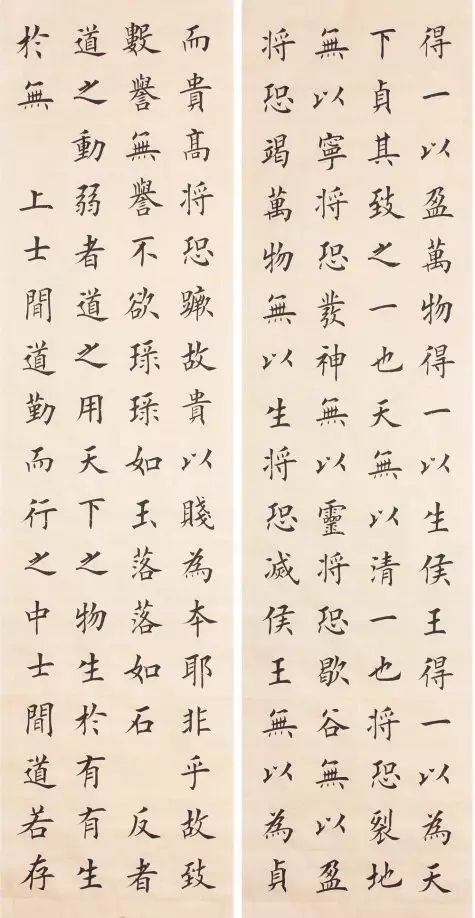 得一以盈萬物得一以生侯王得一以為天
下貞其致之一也天無以清一也将恐裂地
無以寧将恐發神無以靈将恐歇谷無以盈
将恐竭萬物無以生将恐滅侯王無以為貞
而貴髙将恐蹶故貴以賤為本耶非乎故致
數譽無譽不欲琭琭如玉落落如石 反者
道之動弱者道之用天下之物生於有有生
於無 上士聞道勤而行之中士聞道若存